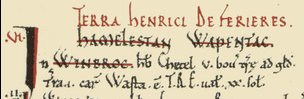 TERRA HENRICI DE FERIERES.
.VI. HAMELESTAN WAPENTAC.
In WINEROC. hb Chetel v. bou træ ad gld.
Tra .car. Wasta. ē. T.R.E. uał. xx. sol.
.II.